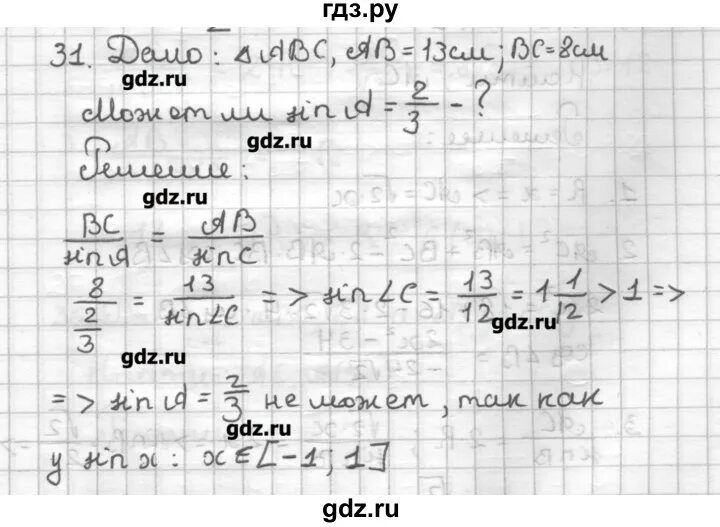 гдз.ру
31. Дано: △ABC, AB = 13см; BC = 8см
gdz.ru
Может ли sin A = 2/3 - ?
gdz.ru
Решение:
gdz.ru
BC/sin A = AB/sin C
8/(2/3) = 13/sin∠C => sin∠C = 13/12 = 1 1/12 > 1 =>
gdz.ru
gdz.ru
=> sin A = 2/3 не может, так как
gdz.ru
у sin x : x ∈ [-1, 1]
gdz.ru
gdz.ru